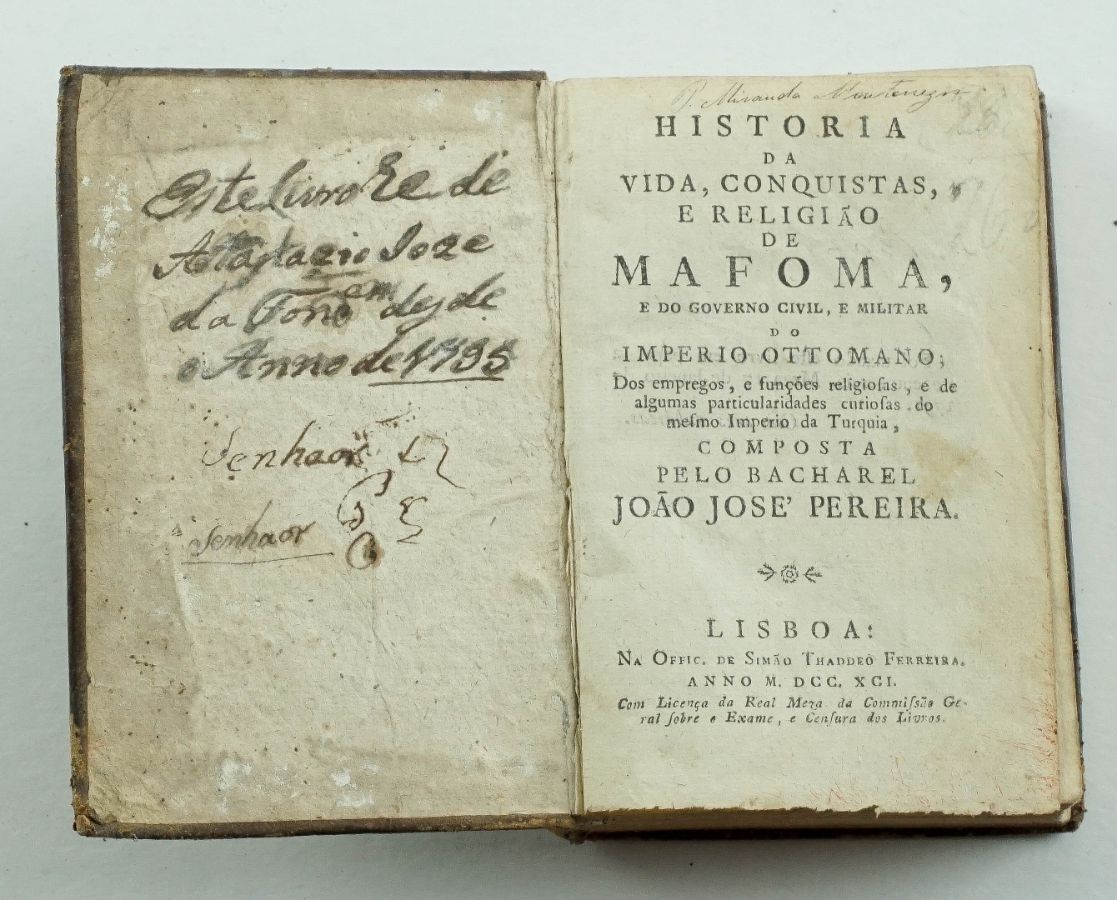 Este livro he de
Joze
da desde
o Anno de 1795
Senhaor
Senhaor
P. Miranda Montenegro
HISTORIA
DA
VIDA, CONQUISTAS,
E RELIGIÃO
DE
MAFOMA,
E DO GOVERNO CIVIL, E MILITAR
DO
IMPERIO OTTOMANO;
Dos empregos, e funções religioſas, e de
algumas particularidades curioſas do
meſmo Imperio da Turquia,
COMPOSTA
PELO BACHAREL
JOÃO JOSE' PEREIRA.
LISBOA:
NA OFFIC. DE SIMÃO THADDEO FERREIRA.
ANNO M. DCC. XCI.
Com Licença da Real Meza da Commiſsão Ge-
ral ſobre o Exame, e Cenſura dos Livros.